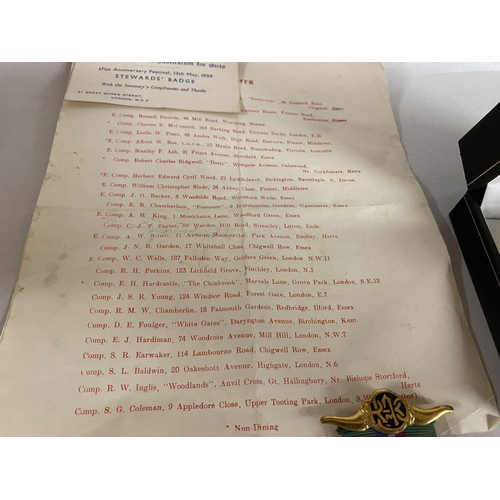 Institution for Girls
171st Anniversary Festival, 13th May, 1959
STEWARDS' BADGE
With the Secretary's Compliments and Thanks
31 GREAT QUEEN STREET,
LONDON, W.C.2
E. Comp. Russell Daniels, 46 Mill Road, Worthing, Sussex
* Comp. Charles E. McConnell, 164 Barking Road, Victoria Docks, London, E.16
E. Comp. Leslie W. Pratt, 46 Azalea Walk, High Road, Eastcote, Pinner, Middlesex
*E. Comp. Albert W. Roe, 10 Road, Nunawading, Victoria, Australia
E. Comp. Stanley F. Ash, 81 Friars Avenue, Shenfield, Essex
* Comp. Robert Charles Bidgwell, Westpole Avenue, Oakwood,
Nr. Cockfosters, Herts
*E. Comp. Herbert Edward Cyril Wood, 27 Bickington, Barnstaple, N. Devon
E. Comp. William Christopher Slade, 24 Abbey Close, Pinner, Middlesex
E. Comp. J. G. Barker, 8 Woodside Road, Woodford Wells, Essex
E. Comp. E. R. Chamberlain, Gardens, Upminster, Essex
E. Comp. A. W. King, 1 Monkhams Lane, Woodford Green, Essex
Comp. C. J. F. Taylor, 20 Warden Hill Road, Streatley, Luton, Beds.
E. Comp. A. W. 11 Avenue Park Avenue, Bushey, Herts.
Comp. J. N. B. Garden, 17 Whitehall Close, Chigwell Row, Essex
E. Comp. W. C. Wells, 187 Falloden Way, Golders Green, London, N.W.11
Comp. R. H. Perkins, 123 Lichfield Grove, Finchley, London, N.3
* Comp. E. H. Hardcastle, "The Chinbrook," Marvels Lane, Grove Park, London, S.E.12
Comp. J. S. R. Young, 124 Windsor Road, Forest Gate, London, E.7
Comp. R. M. W. Chamberlin, 18 Falmouth Gardens, Redbridge, Ilford, Essex
Comp. D. E. Foulger, "White Gates," Daryngton Avenue, Birchington, Kent
Comp. E. J. Hardiman, 74 Woodcote Avenue, Mill Hill, London, N.W.7
Comp. S. R. Earwaker, 114 Lambourne Road, Chigwell Row, Essex
Comp. S. L. Baldwin, 20 Oakeshott Avenue, Highgate, London, N.6
Comp. R. W. Inglis, "Woodlands", Anvil Cross, Gt. Hallingbury, Nr. Bishops Stortford,
Herts
Comp. S. G. Coleman, 9 Appledore Close, Upper Tooting Park, London, S.W.
* Non-Dining